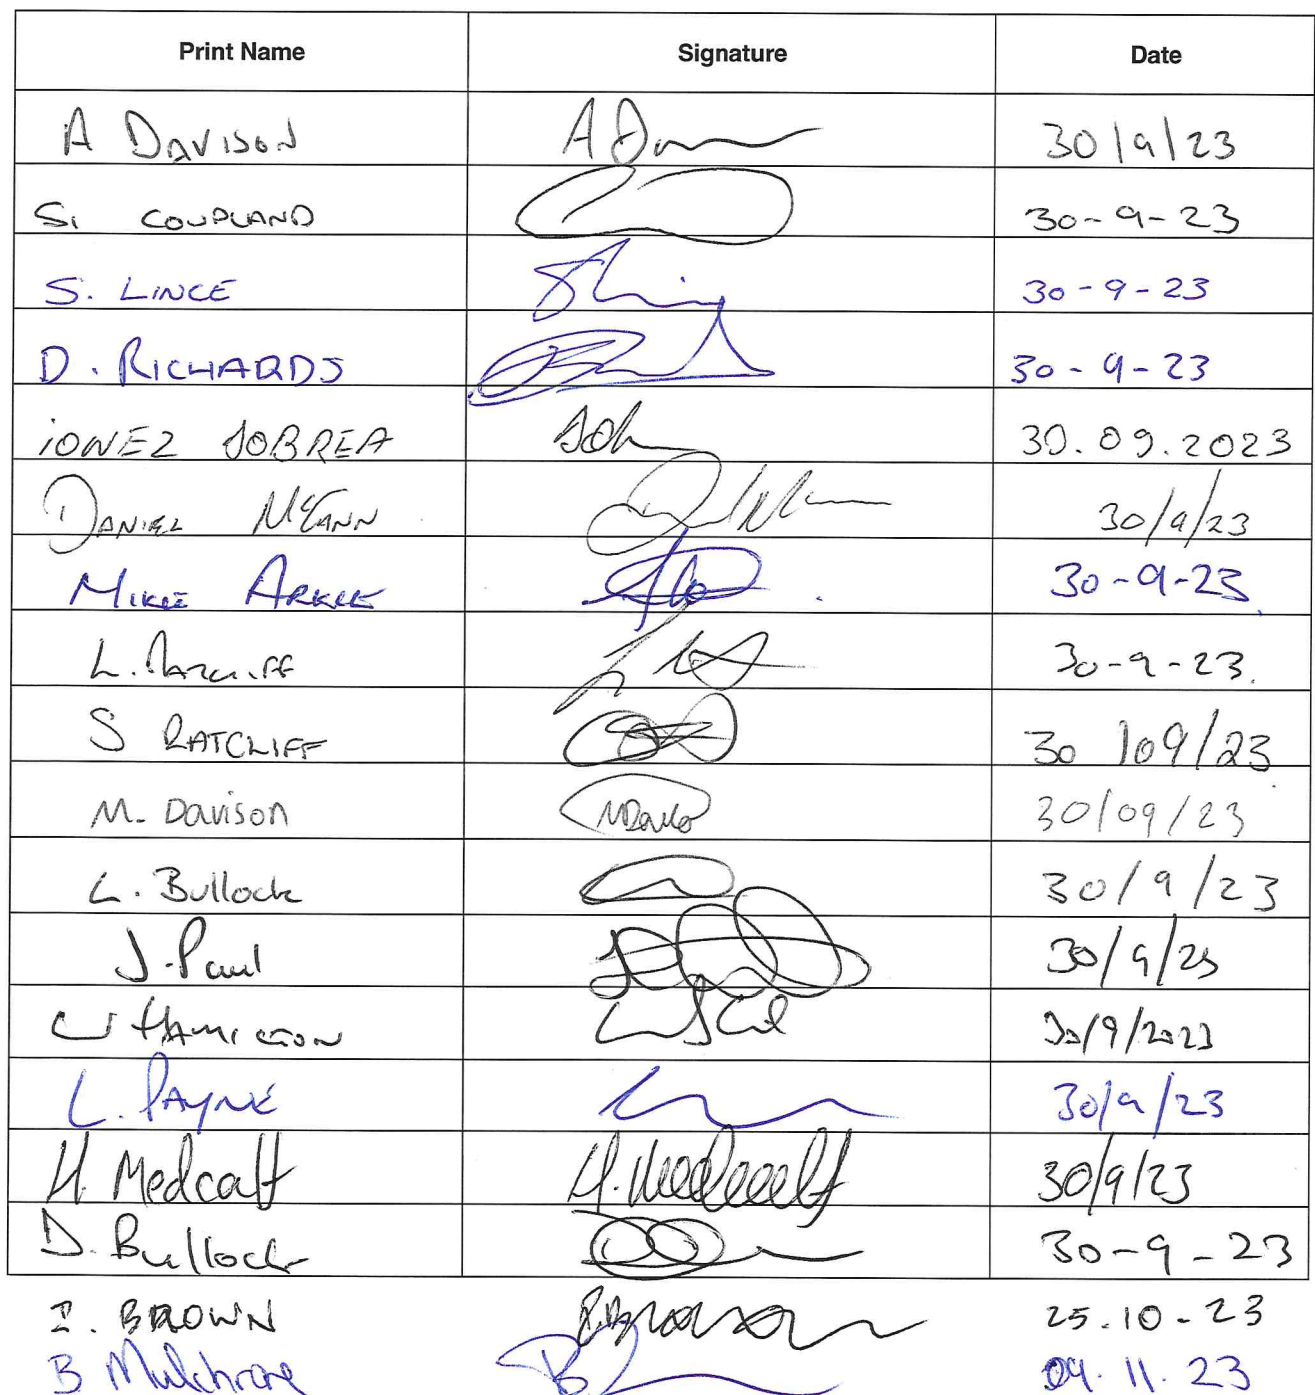 Print Name Signature Date
A DAVISON A D 30/9/23
S. COUPLAND 30-9-23
S. LINCE 30-9-23
D. RICHARDS 30-9-23
iONEZ DOBREA 30.09.2023
DANIEL McCANN 30/9/23
MIKE ARKLE 30-9-23
L. RATCLIFF 30-9-23
S RATCLIFF 30/09/23
M. Davison 30/09/23
L. Bullock 30/9/23
J. Paul 30/9/23
W HAMILTON 30/9/2023
L. PAYNE 30/9/23
H. Medcalf H. Medcalf 30/9/23
D. Bullock 30-9-23
I. BROWN 25.10-23
B Mulchrone 09.11.23